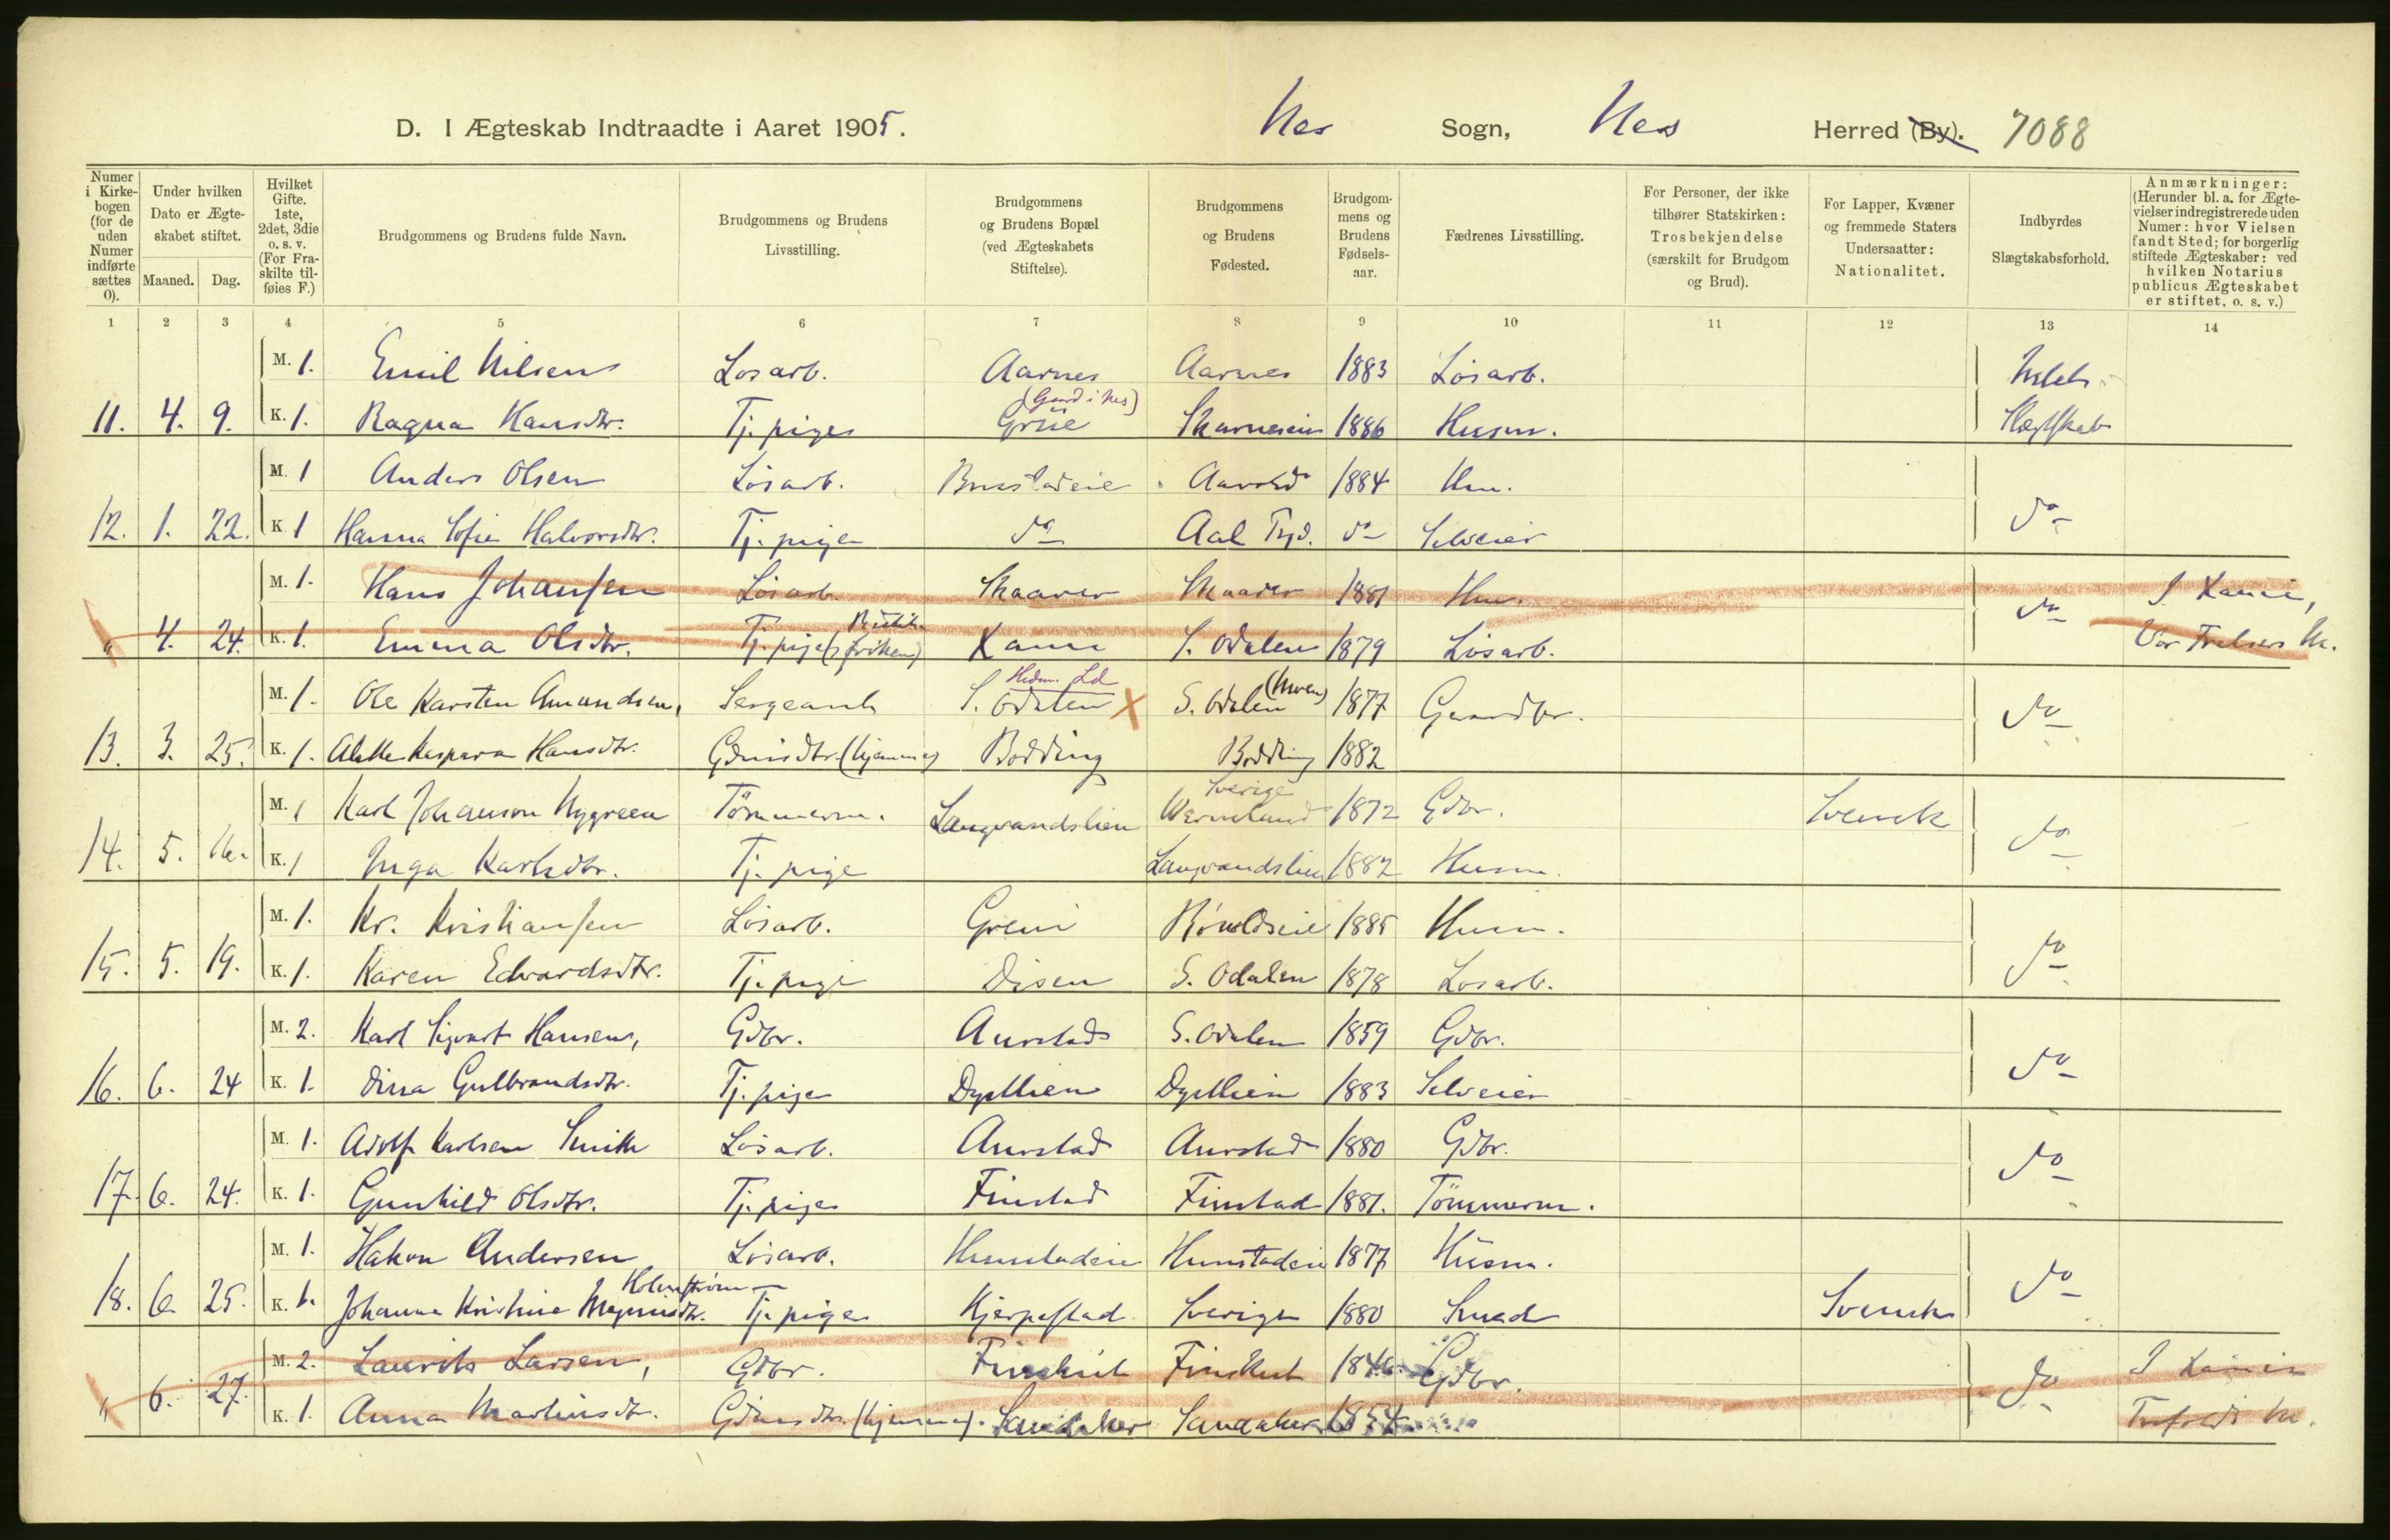 D. I Ægteskab Indtraadte i Aaret 1905. Nes Sogn, Nes Herred (By). 7088
Numer i Kirkebogen (for de uden Numer indførte sættes 0). Under hvilken Dato er Ægteskabet stiftet. Maaned. Dag. Hvilket Gifte. 1ste, 2det, 3die o. s. v. (For Fraskilte tilføies F.) Brudgommens og Brudens fulde Navn. Brudgommens og Brudens Livsstilling. Brudgommens og Brudens Bopæl (ved Ægteskabets Stiftelse). Brudgommens og Brudens Fødested. Brudgommens og Brudens Fødselsaar. Fædrenes Livsstilling. For Personer, der ikke tilhører Statskirken: Trosbekjendelse (særskilt for Brudgom og Brud). For Lapper, Kvæner og fremmede Staters Undersaatter: Nationalitet. Indbyrdes Slægtskabsforhold. Anmærkninger: (Herunder bl. a. for Ægtevielser indregistrerede uden Numer: hvor Vielsen fandt Sted; for borgerlig stiftede Ægteskaber: ved hvilken Notarius publicus Ægteskabet er stiftet, o. s. v.)
1 2 3 4 5 6 7 8 9 10 11 12 13 14
M. 1. Emil Nilsen Løsarb. Aarnes Aarnes 1883 Løsarb.
(Gaard i Nes)
11. 4. 9. K. 1. Ragna Hansdtr. Tj. pige Grüe 1886 Husm. Slægtskab
M. 1 Anders Olsen Løsarb. Aavold 1884 Hm.
12. 1. 22. K. 1 Hanna Sofie Halvorsdtr. Tj. pige do Aal do Selveier do
M. 1. Hans Johansen Løsarb. Skaarer Skaarer 1881 Hm. do
" 4. 24. K. 1. Emma Olsdtr. Tj. pige S. Odalen 1879 Løsarb. Vor Frelsers K.
Hedm. Ld
M. 1. Ole Karsten Amundsen, Sergeant S. Odalen X S. Odalen 1877 Gaardbr. do
13. 3. 25. K. 1. Kaspara Hansdtr. Gdmsdtr. (hjemme) Bodding Bodding 1882
Sverige
M. 1 Karl Johanson Nygreen Tömmerm. Langvandslien Wermland 1872 Gdbr. Svensk do
14. 5. 16. K. 1 Inga Karlsdtr. Tj. pige Langvandslien 1882 Husm.
M. 1. Kr. Kristiansen Løsarb. Greni 1885 Husm. do
15. 5. 19. K. 1. Karen Edvardsdtr. Tj. pige Disen S. Odalen 1878 Løsarb.
M. 2. Karl Sigvart Hansen, Gdbr. Aurstad S. Odalen 1859 Gdbr. do
16. 6. 24 K. 1. Dina Gulbrandsdtr. Tj. pige Dystlien Dystlien 1883 Selveier
M. 1. Adolf Karlsen Smith Løsarb. Aurstad Aurstad 1880 Gdbr. do
17. 6. 24. K. 1. Gunhild Olsdtr. Tj. pige Finstad Finstad 1881. Tömmerm.
M. 1. Hakon Andersen Løsarb. Hunstadeie Hunstadeie 1877 Husm. do
Holmström
18. 6. 25. K. 1. Johanna Kristine Magnusdtr. Tj. pige Kjerpestad Sverige 1880 Smed Svensk
M. 2. Laurits Larsen, Gdbr. Finskut Finskut Gdbr. do
" 6. 27. K. 1. Anna Martinsdtr. Gdmsdtr. (hjemme). Sandaker Sandaker 1854